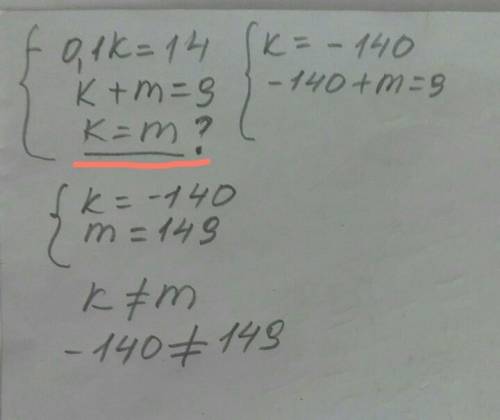 0,1k=14
k+m=9
k=m?
k=-140
-140+m=9
k=-140
m=149
k≠m
-140≠149